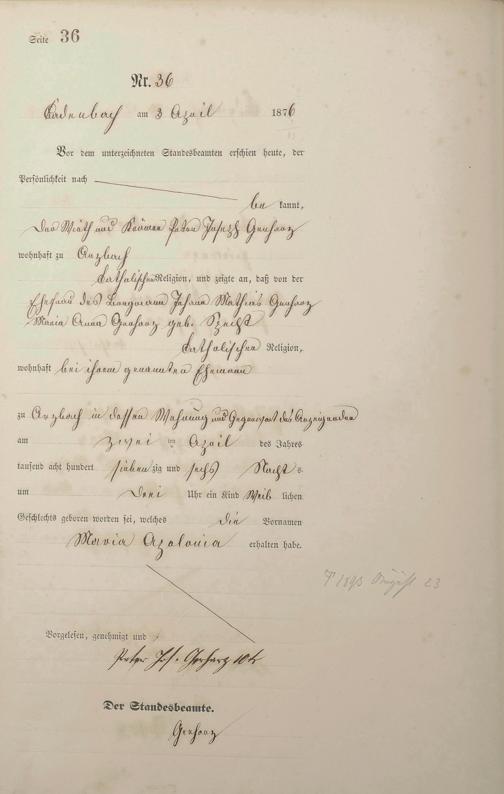 Seite 36
Nr. 36
Kadenbach am 3 April 1876
Vor dem unterzeichneten Standesbeamten erschien heute, der
Persönlichkeit nach
be kannt,
der Wirth und Krämer Peter Joseph Gerharz
wohnhaft zu Arzbach
katholischer Religion, und zeigte an, daß von der
Ehefrau des Johann Mathias Gerharz
Maria Anna Gerharz geb. Specht
katholischen Religion,
wohnhaft bei ihrem genannten Ehemann
zu Arzbach in dessen Wohnung und Gegenwart des Anzeigenden
am zwei ten April des Jahres
tausend acht hundert sieben zig und sechs Nacht s
um drei Uhr ein Kind Weib lichen
Geschlechts geboren worden sei, welches die Vornamen
Maria Apolonia erhalten habe.
Vorgelesen, genehmigt und
Peter Jos. Gerharz
Der Standesbeamte.
Gerharz